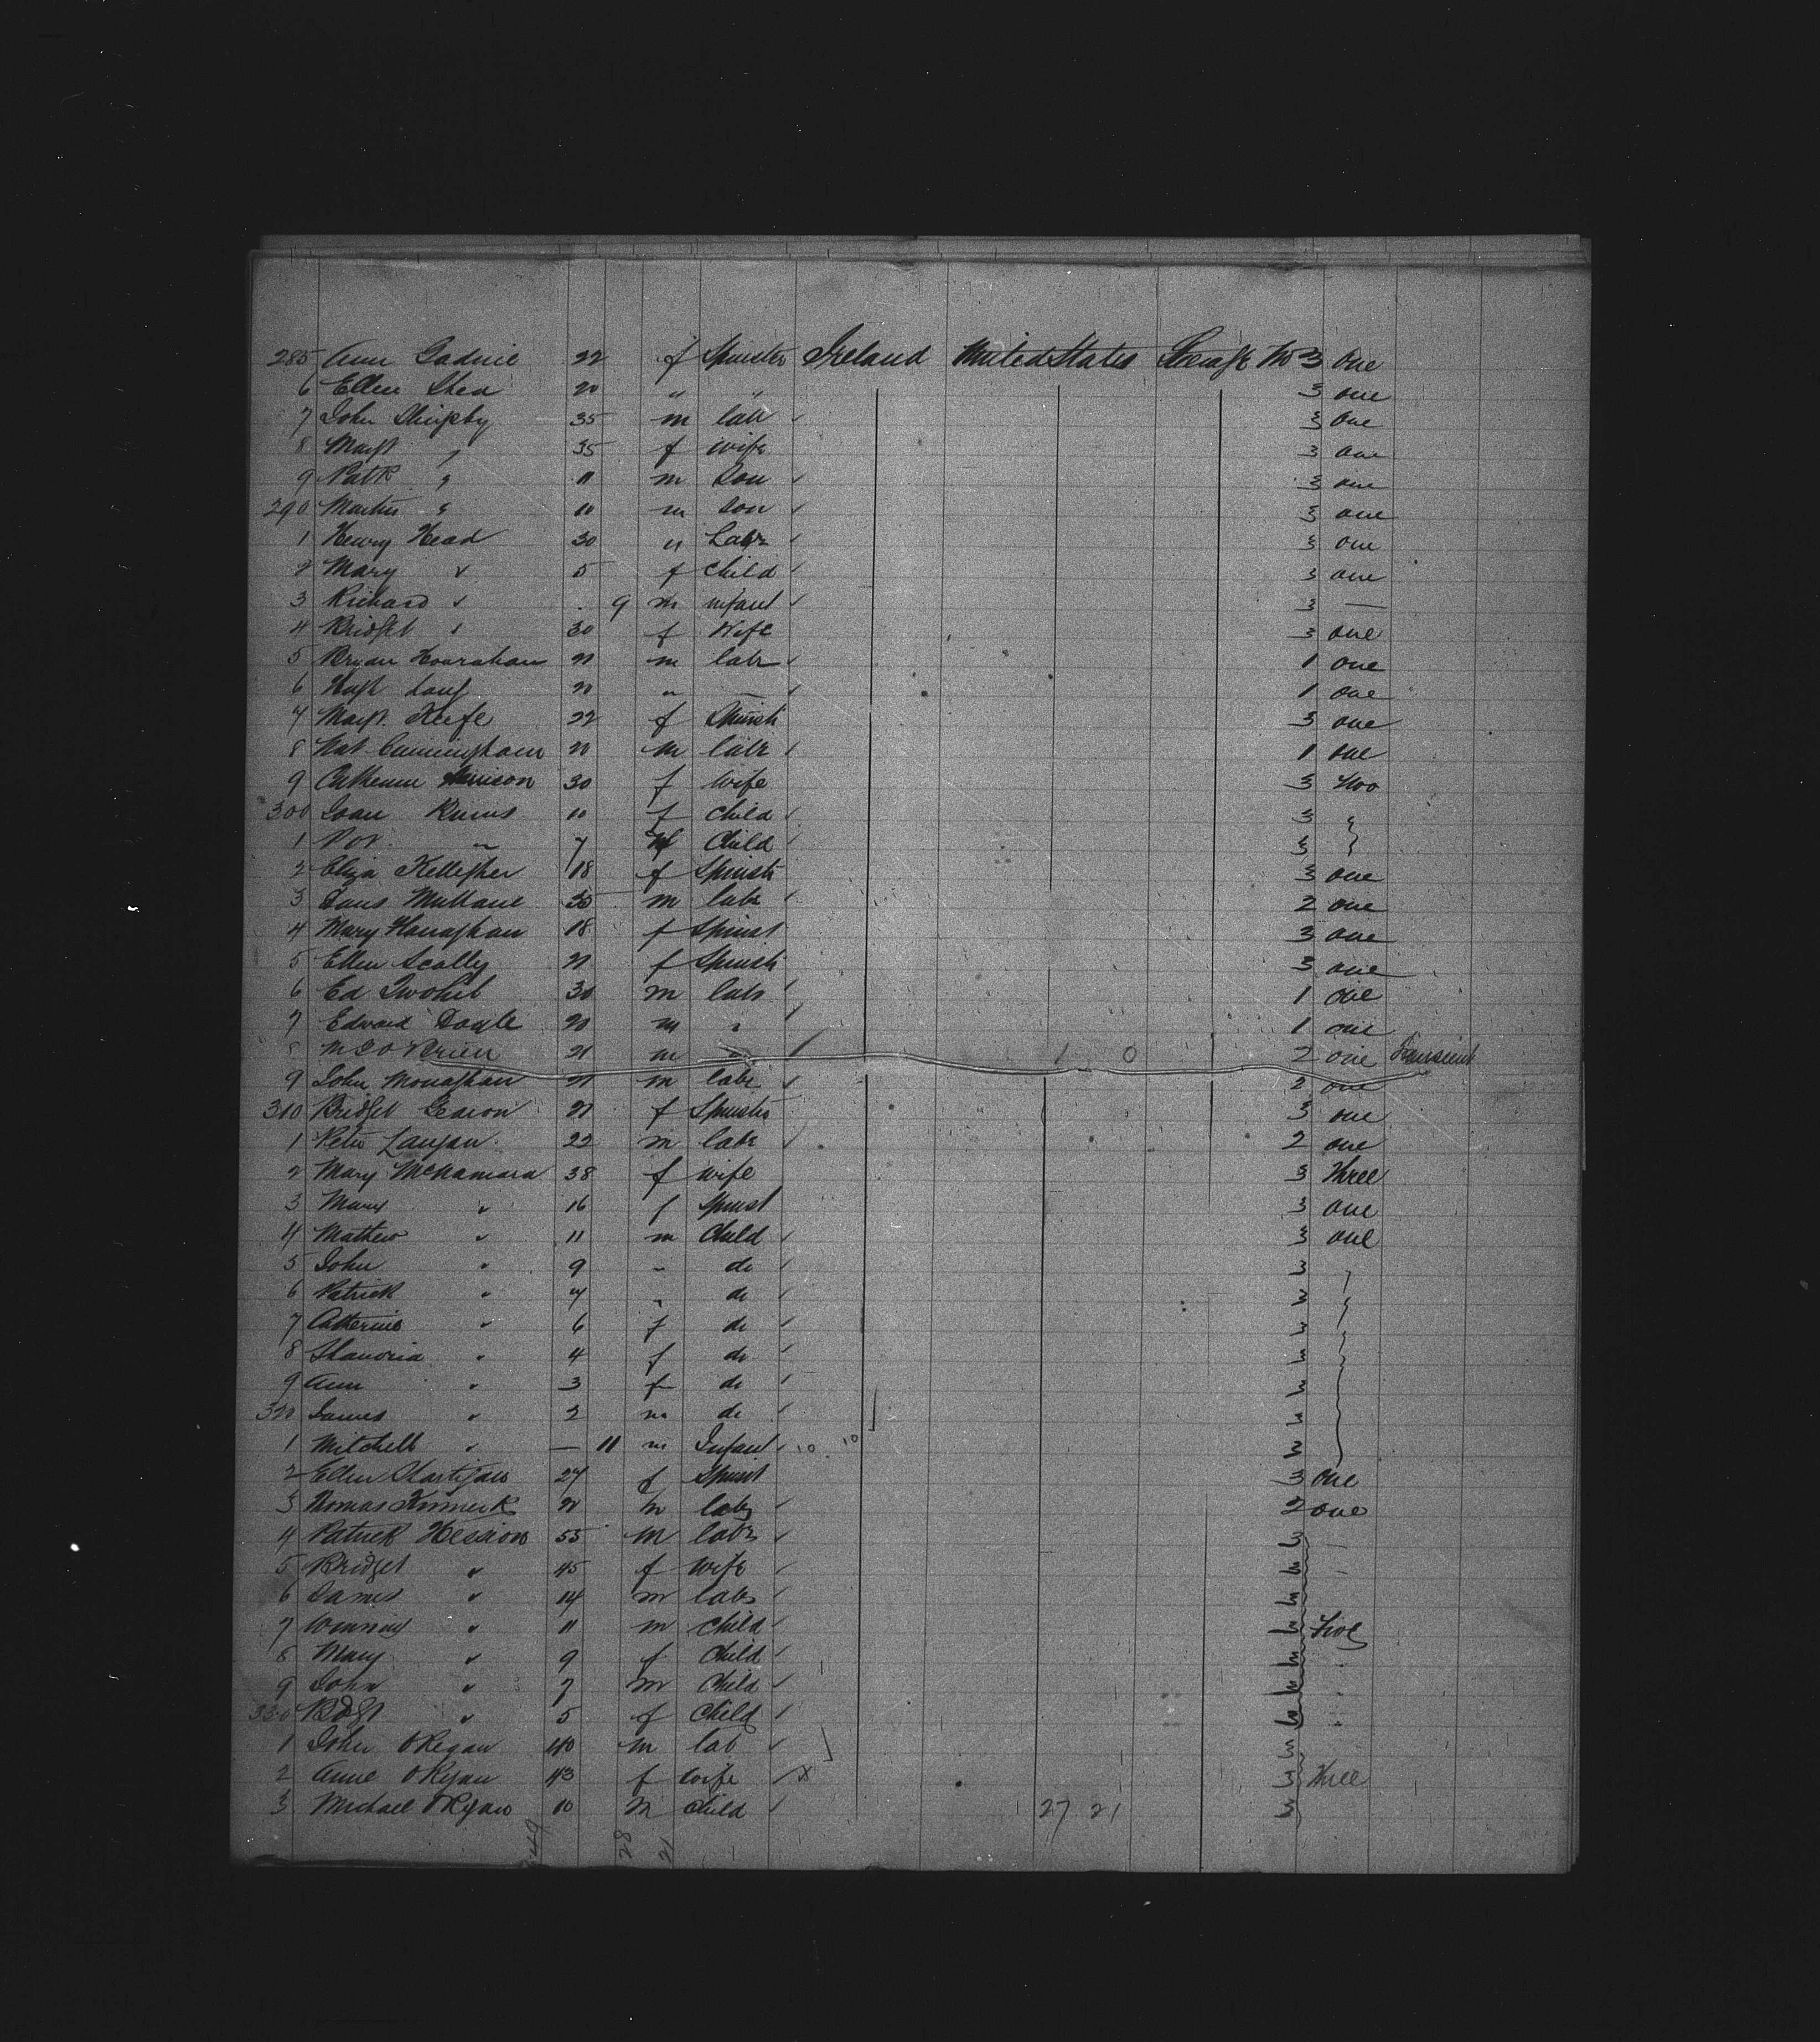 285 Ann 22 f Spinster Ireland United States Steerage No 3 one
6 Ellen Shea 20 " " 3 one
7 John 35 m lab 3 one
8 Margt " 35 f wife 3 one
9 Patk " 11 m Son 3 one
290 Martin " 10 m son 3 one
1 Henry Head 30 " Labr 3 one
2 Mary " 5 f child 3 one
3 Richard " 9 m infant 3 —
4 Bridget " 30 f Wife 3 one
5 Bryan Hourahan 21 m labr 1 one
6 Hugh 20 " — 1 one
7 Margt Keefe 22 f Spinstr 3 one
8 Mat Cunningham 20 m labr 1 one
9 Catherine 30 f wife 3 two
300 Joan 10 f child 3 "
1 " 7 Child 3 "
2 Eliza Kellegher 18 f Spinstr 3 one
3 Mullane 35 m labr 2 one
4 Mary Hanaghan 18 f Spinst 3 one
5 Ellen Scally 21 f Spinstr 3 one
6 Ed Twohill 30 m labr 1 one
7 Edward 20 m " 1 one
8 O'Brien 21 m " 1 0 2 one Transient
9 John Monaghan 21 m labr 2 one
310 Bridget Gearon 21 f Spinster 3 one
1 Peter Langan 22 m labr 2 one
2 Mary McNamara 38 f wife 3 three
3 Mary " 16 f Spinst 3 one
4 Mathew " 11 m Child 3 one
5 John " 9 " do 3 "
6 Patrick " 7 " do 3 "
7 Catherine " 6 f do 3 "
8 Hanoria " 4 f do 3 "
9 Ann " 3 f do 3
320 James " 2 m do 3
1 Mitchell " — 11 m Infant 10 10 3
2 Ellen Hartigan 27 f Spinst 3 one
3 Thomas 21 m labr 2 one
4 Patrick Hession 55 m labr 3
5 Bridget " 45 f wife 3
6 James " 14 m labr 3
7 " 11 m child 3 Five
8 Mary " 9 f Child 3
9 John " 7 m Child 3
330 Bdgt " 5 f Child 3
1 John O'Regan 40 m lab 3
2 Anne O'Regan 43 f wife x 3 three
3 Michael O'Regan 10 m child 27 21 3
49 28 21